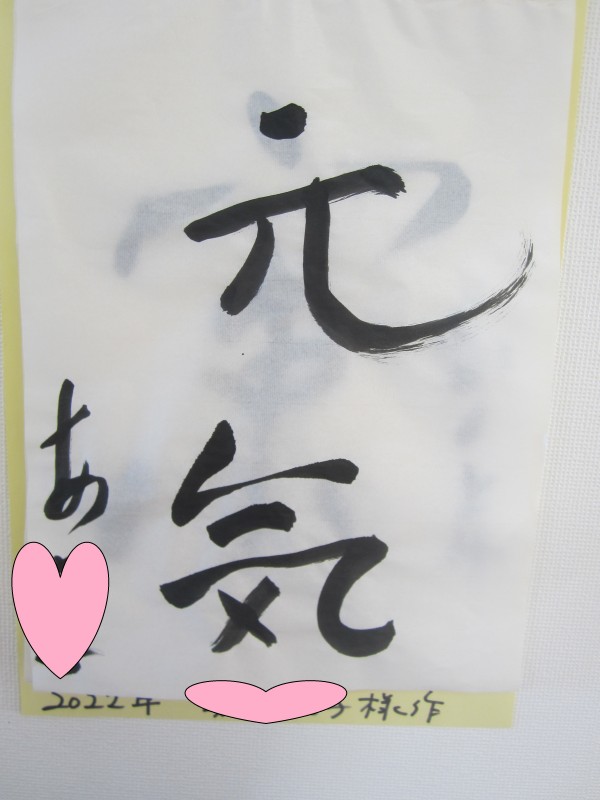 元気
あ
2022年 子様作